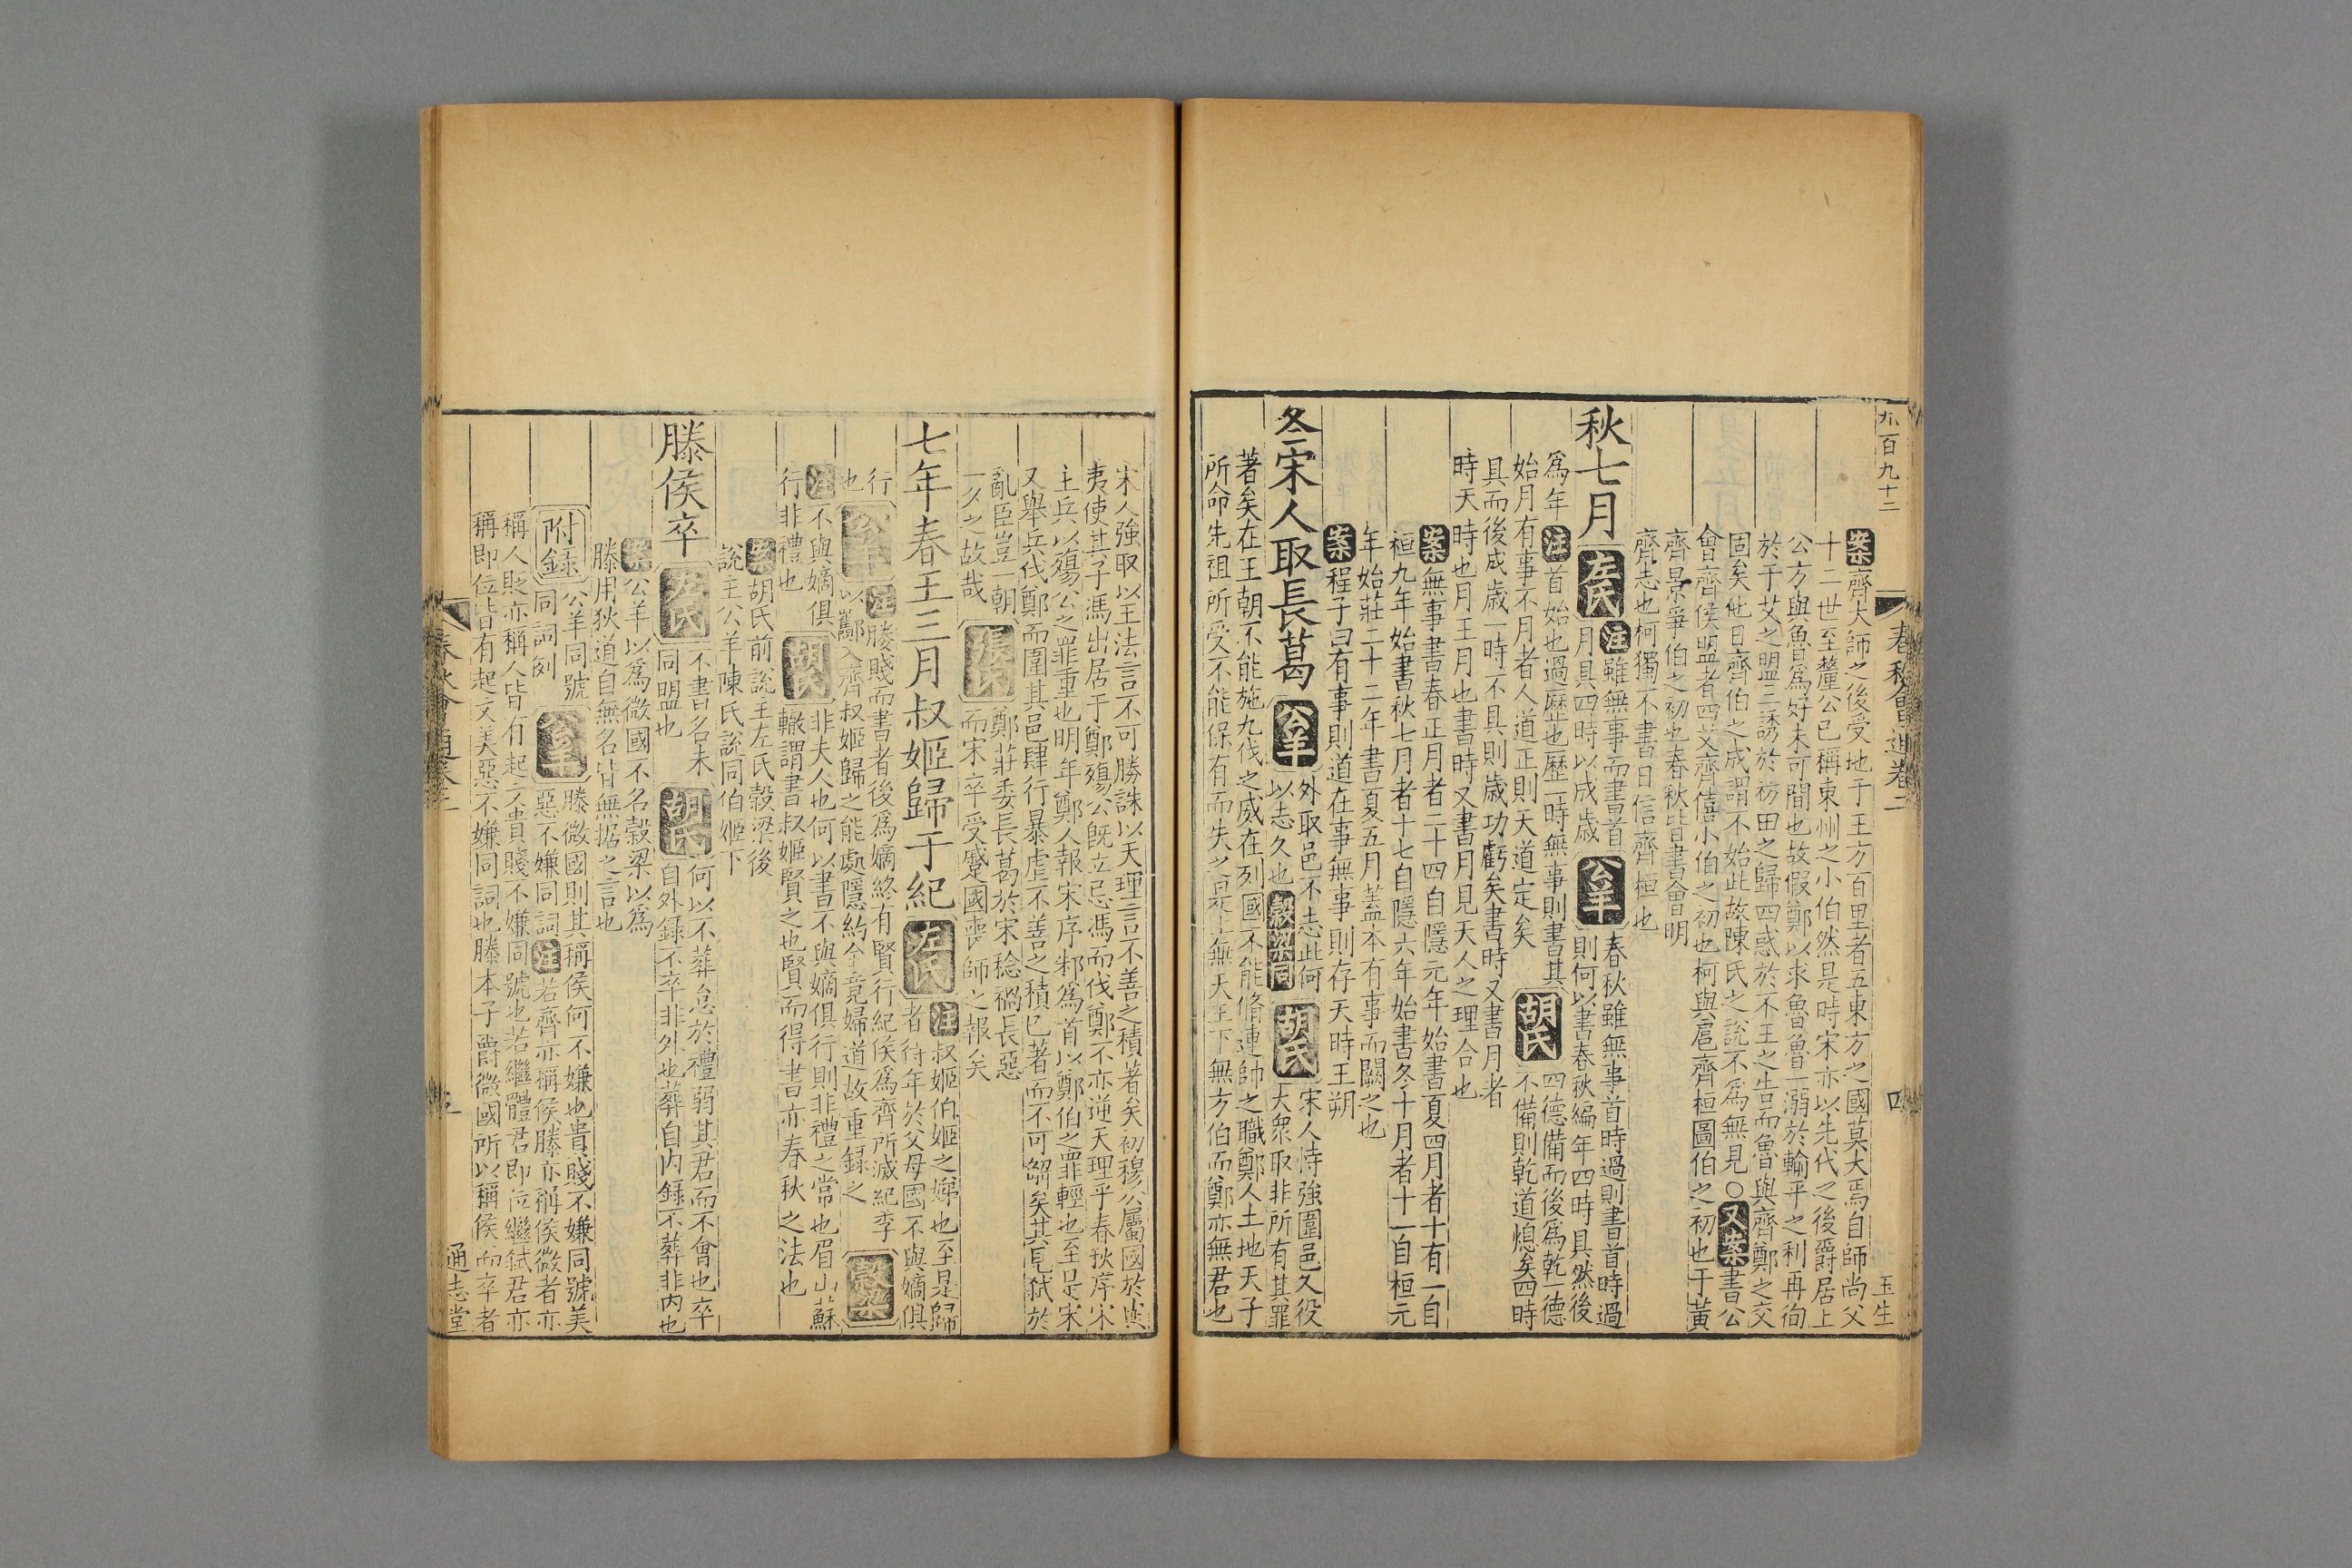 尔百九十二
春秋會通卷二
四
玉生
案齊大師之後受地于王方百里者五東方之國莫大焉自師尚父
十二世至釐公已稱東州之小伯然是時宋亦以先代之後爵居上
公方與魯爲好未可間也故假鄭以求魯魯一溺於輸平之利再徇
於于艾之盟三誘於祊田之歸四惑於不王之告而魯與齊鄭之交
固矣他日齊伯之成謂不始此故陳氏之說不爲無見○又案書公
會齊侯盟者四艾齊僖小伯之初也柯與扈齊桓圖伯之初也于黃
齊景爭伯之初也春秋皆書會明
齊志也柯獨不書日信齊桓也
秋七月
左氏
注雖無事而書首
月具四時以成歲
公羊
春秋雖無事首時過則書首時過
則何以書春秋編年四時具然後
爲年注首始也過歷也歷一時無事則書其
始月有事不月者人道正則天道定矣
胡氏
四德備而後爲乾一德
不備則乾道熄矣四時
具而後成歲一時不具則歲功虧矣書時又書月者
時天時也月王月也書時又書月見天人之理合也
案無事書春正月者二十四自隱元年始書夏四月者十有一自
桓九年始書秋七月者十七自隱六年始書冬十月者十一自桓元
年始莊二十二年書夏五月蓋本有事而闕之也
案程子曰有事則道在事無事則存天時王朔
冬宋人取長葛
公羊
外取邑不志此何
以志久也穀梁同
胡氏
宋人恃強圍邑久役
大衆取非所有其罪
著矣在王朝不能施九伐之威在列國不能脩連帥之職鄭人土地天子
所命先祖所受不能保有而失之是上無天王下無方伯而鄭亦無君也
宋人強取以王法言不可勝誅以天理言不善之積著矣初穆公屬國於與
夷使其子馮出居于鄭殤公旣立忌馮而伐鄭不亦逆天理乎春秋序宋
主兵以殤公之罪重也明年鄭人報宋序邾爲首以鄭伯之罪輕也至是宋
又舉兵伐鄭而圍其邑肆行暴虐不善之積已著而不可揜矣其見弒於
亂臣豈一朝
一夕之故哉
張氏
鄭莊委長葛於宋稔禍長惡
而宋卒受蹙國喪師之報矣
七年春王三月叔姬歸于紀
左氏
注叔姬伯姬之娣也至是歸
者待年於父母國不與嫡俱
行
也
公羊
注媵賤而書者後爲嫡終有賢行紀侯爲齊所滅紀季
以酅入齊叔姬歸之能處隱約全竟婦道故重錄之
穀梁
注不與嫡俱
行非禮也
胡氏
非夫人也何以書不與嫡俱行則非禮之常也眉山蘇
轍謂書叔姬賢之也賢而得書亦春秋之法也
案胡氏前說主左氏穀梁後
說主公羊陳氏說同伯姬下
滕侯卒
左氏
不書名未
同盟也
胡氏
何以不葬怠於禮弱其君而不會也卒
自外錄不卒非外也葬自內錄不葬非內也
案公羊以爲微國不名穀梁以爲
滕用狄道自無名皆無據之言也
附錄
公羊同號
同詞例
公羊
滕微國則其稱侯何不嫌也貴賤不嫌同號美
惡不嫌同詞注若齊亦稱侯滕亦稱侯微者亦
稱人貶亦稱人皆有起文貴賤不嫌同號也若繼體君即位繼弒君亦
稱即位皆有起文美惡不嫌同詞也滕本子爵微國所以稱侯而卒者
春秋會通卷二
通志堂